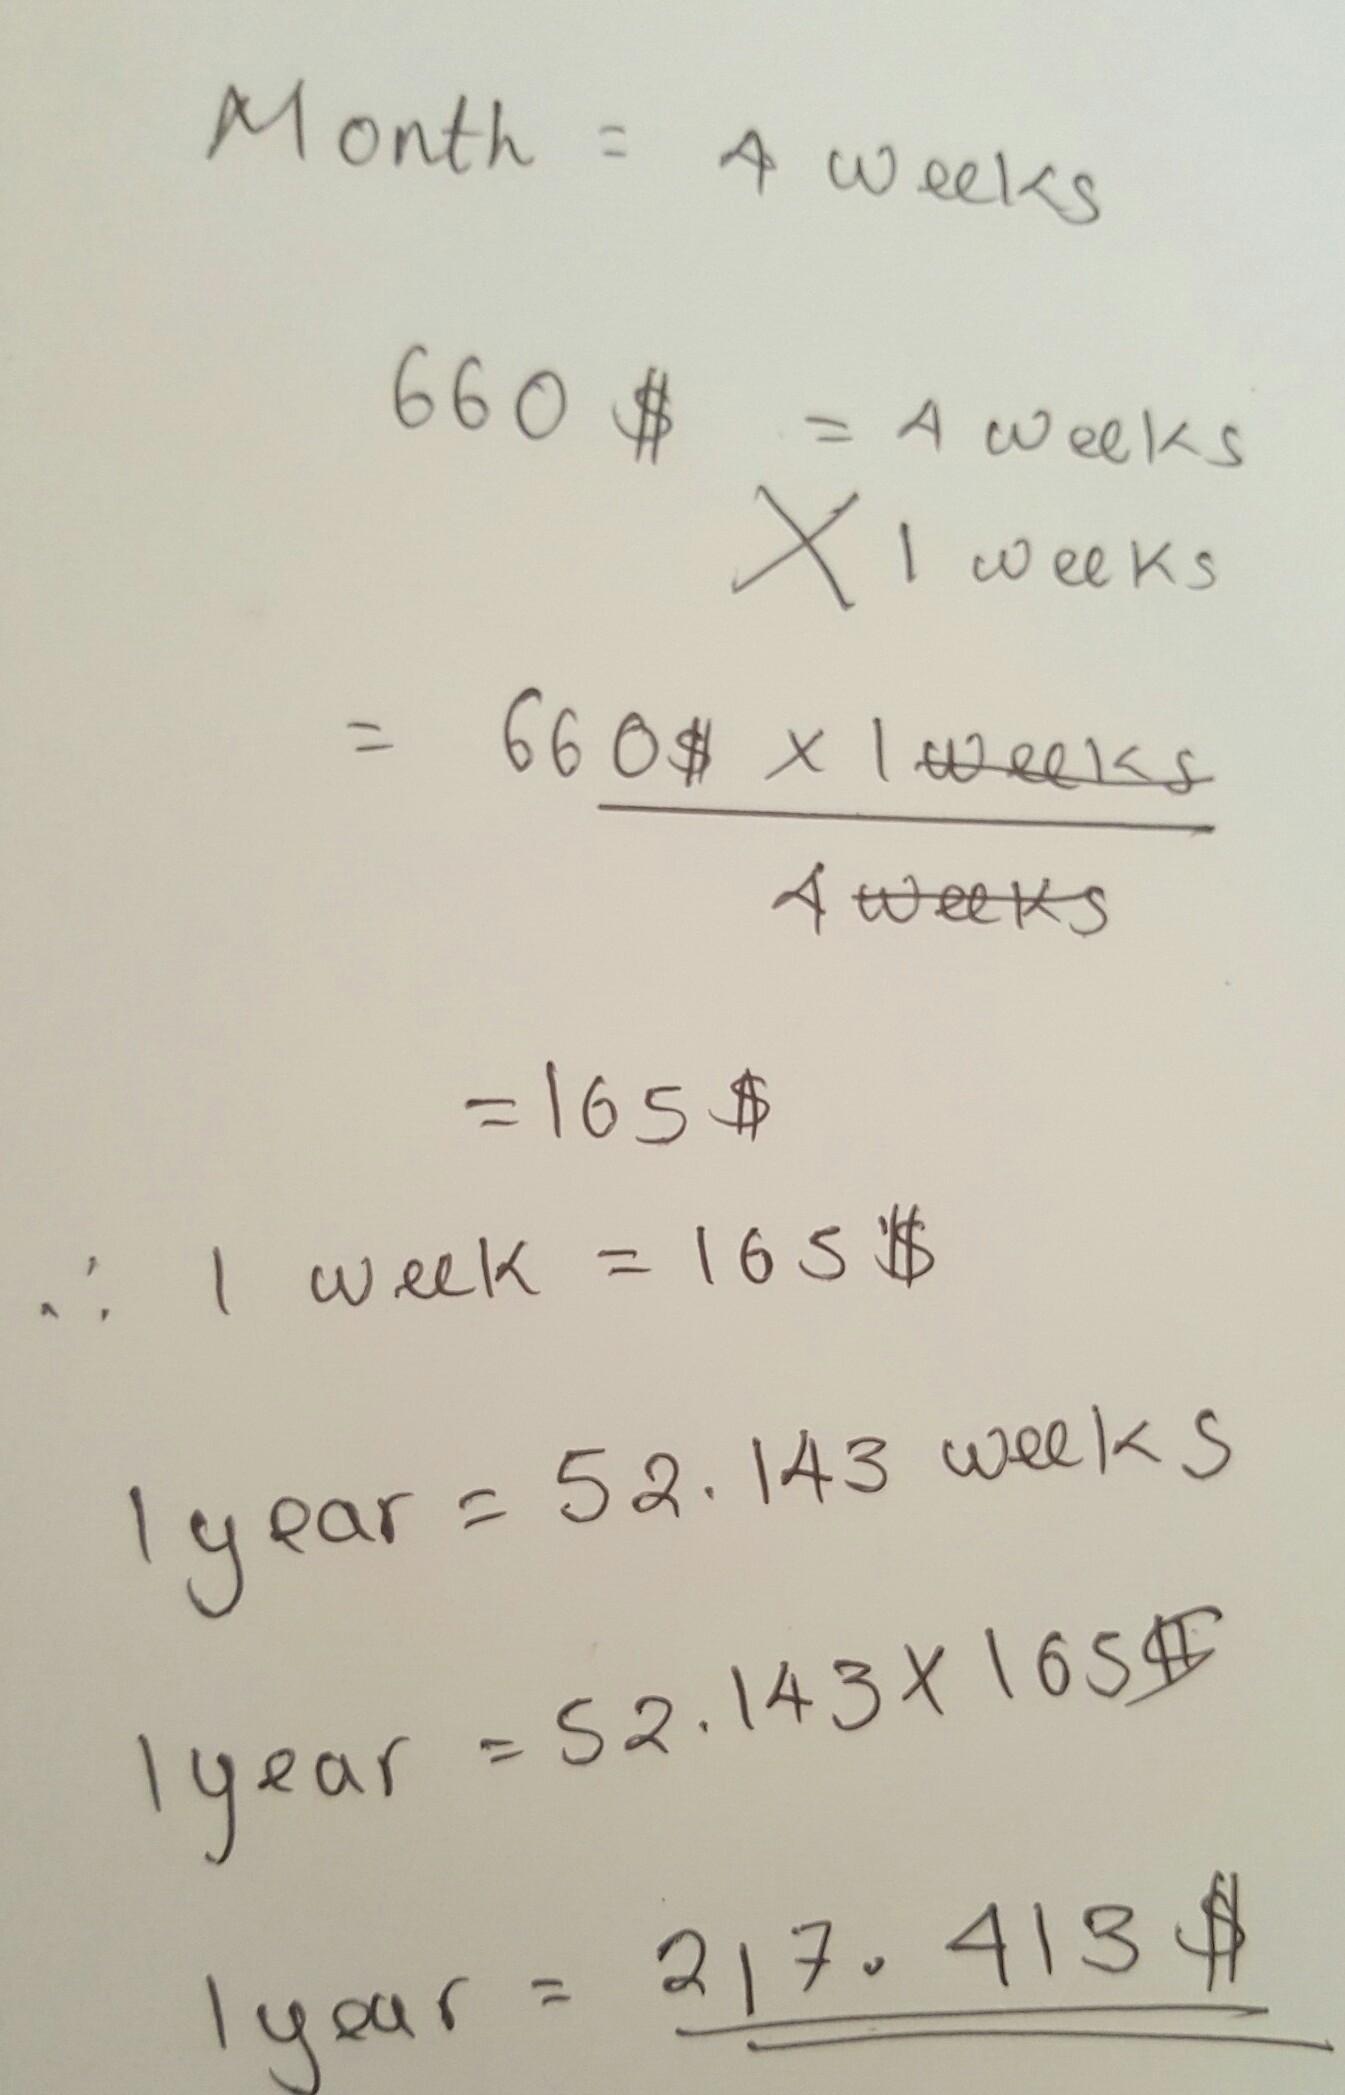 Month = 4 weeks
660 $ = 4 weeks
X 1 weeks
= 660$ x 1 weeks
4 weeks
= 165 $
∴ 1 week = 165 $
1 year = 52.143 weeks
1 year = 52.143 X 165 $
1 year = 217.413 $